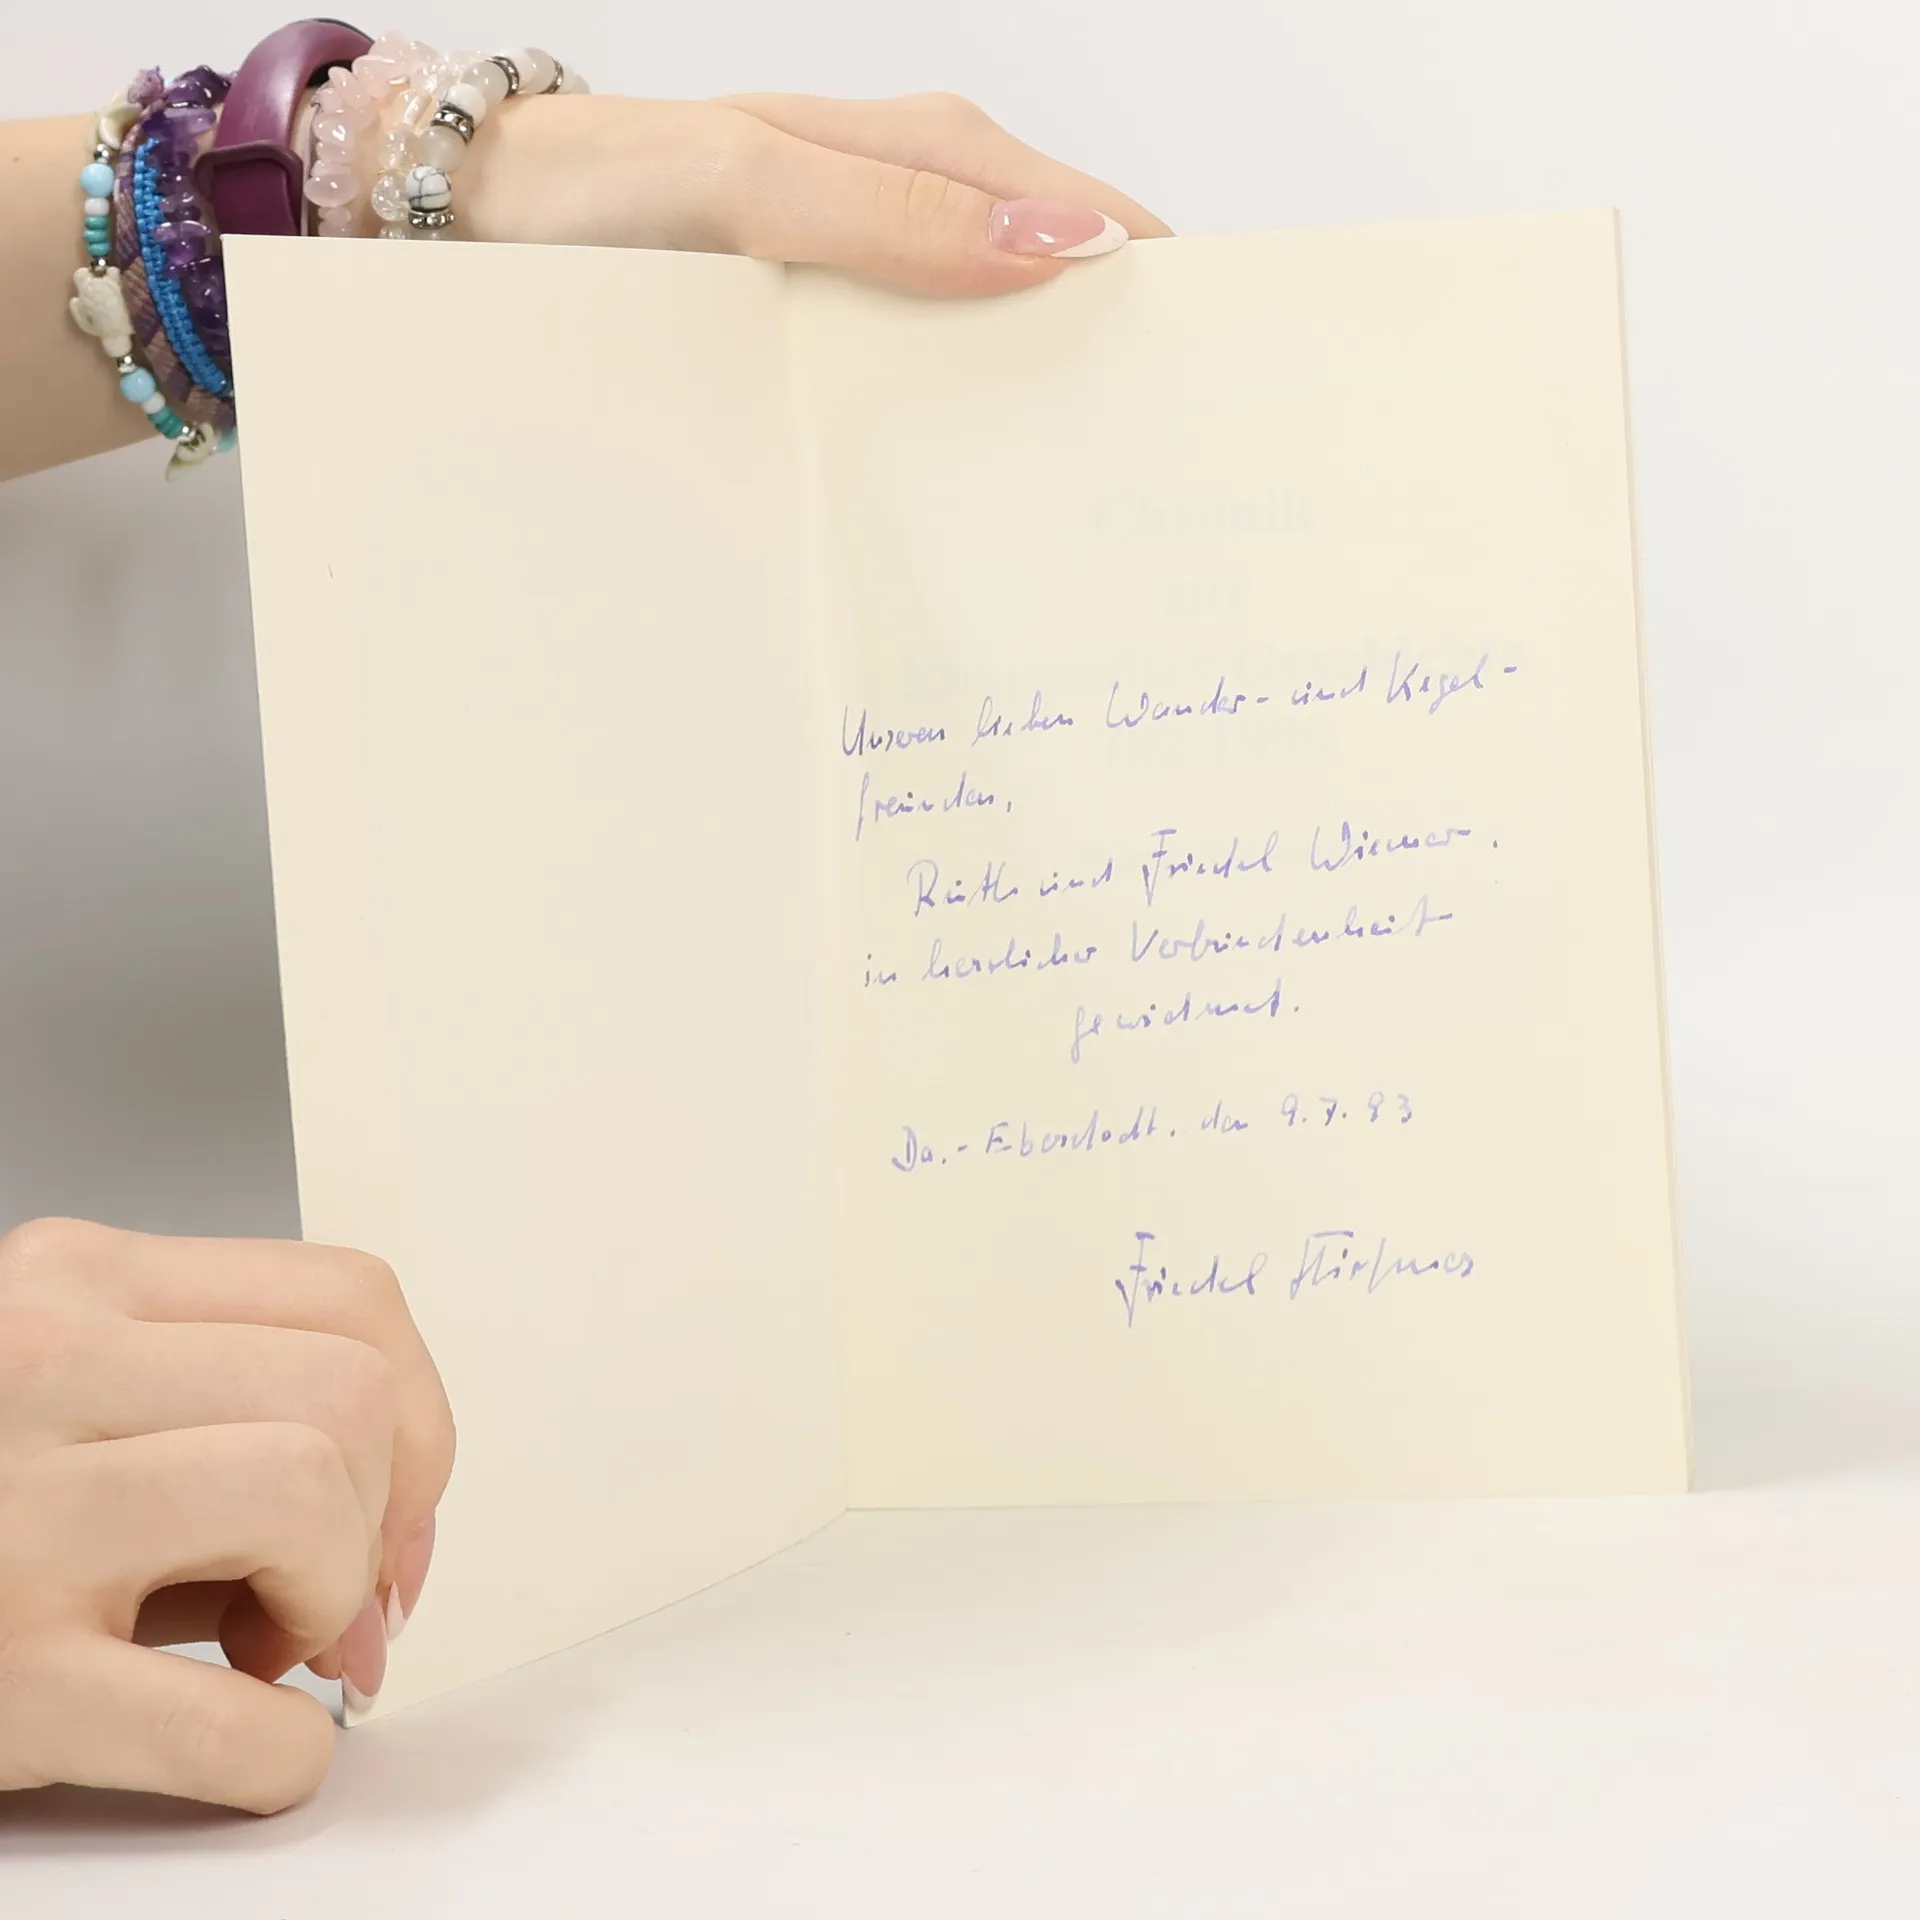 Unseren lieben Wander- und Kegel-
freunden,
Ruth und Friedel Wiemer.
in herzlicher Verbundenheit
gewidmet.
Da.-Eberstadt, den 9.7.83
Friedel
Chronik